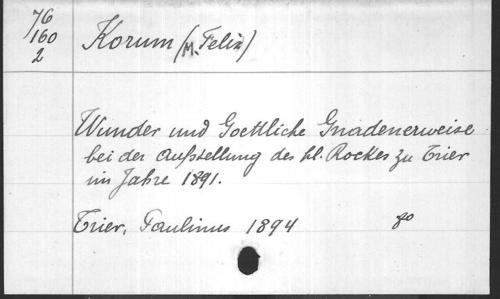 76
160
2
Korum (M. Felix)
Wunder und Goettliche Gnadenerweise
bei der Aufstellung des hl. Rockes zu Trier
im Jahre 1891.
Trier, Paulinus 1894 8o